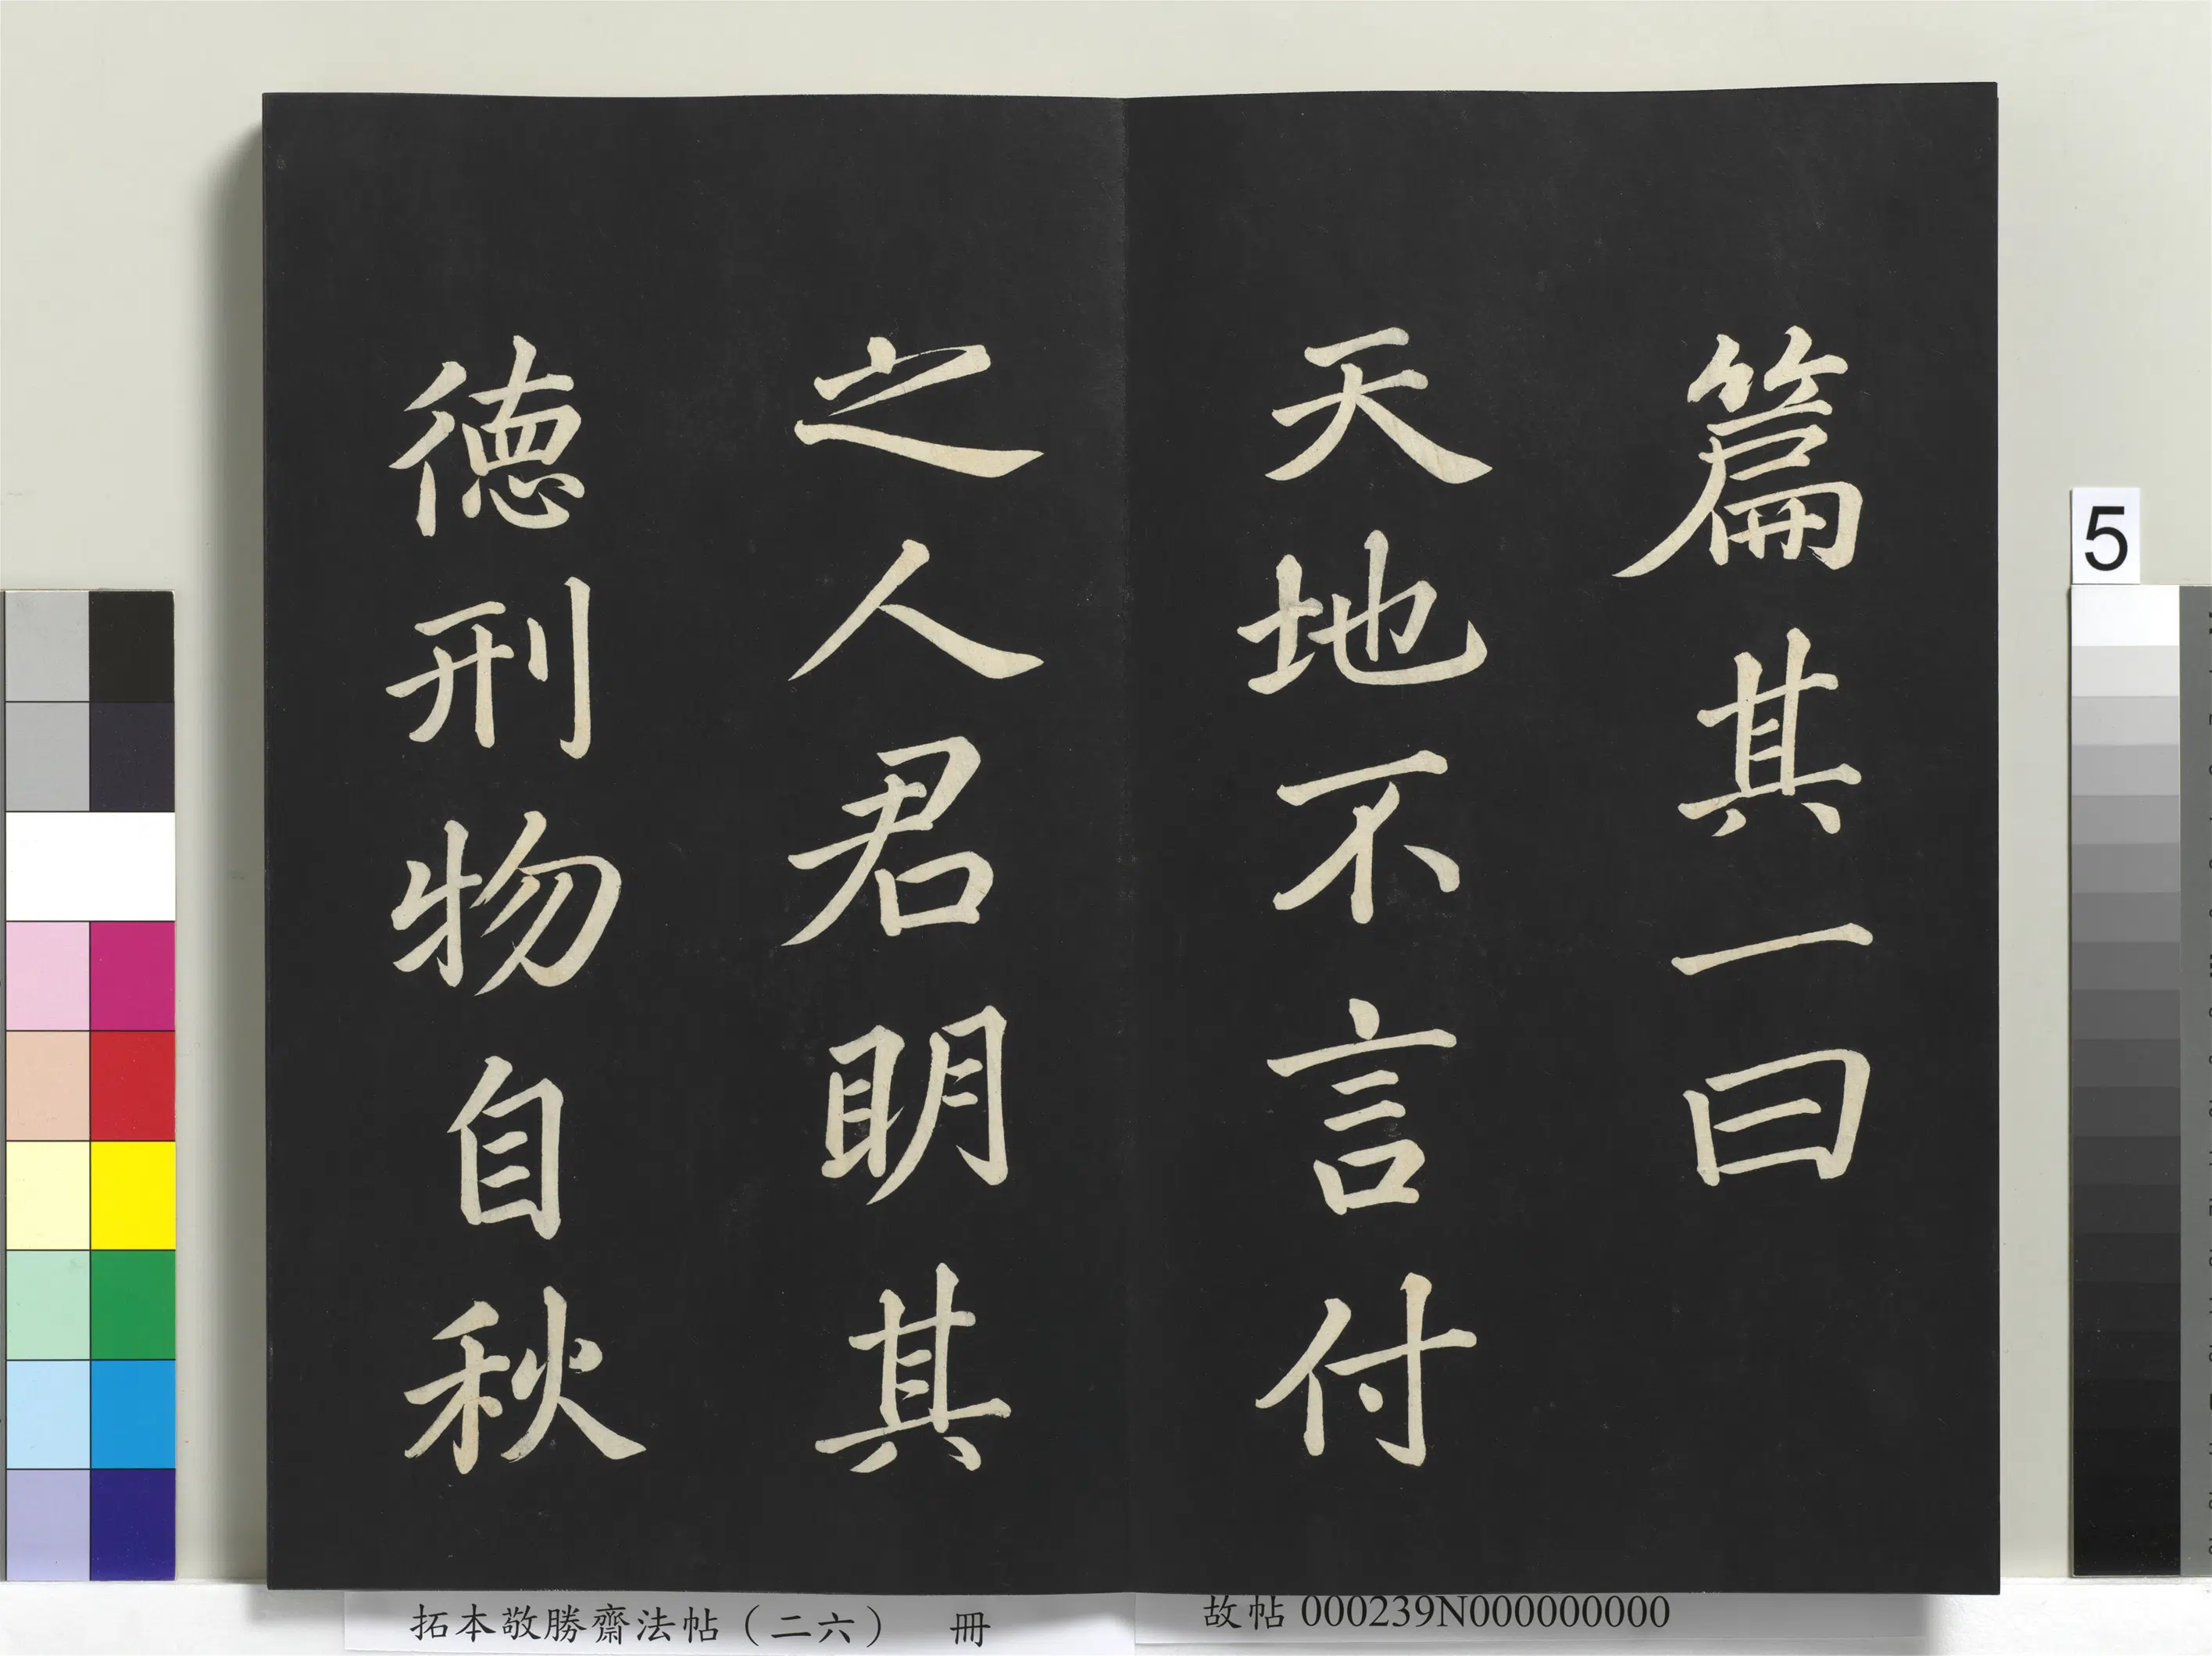 篇其一曰
天地不言付
之人君明其
徳刑物自秋
5
拓本敬勝齋法帖（二六） 冊
故帖 000239N000000000